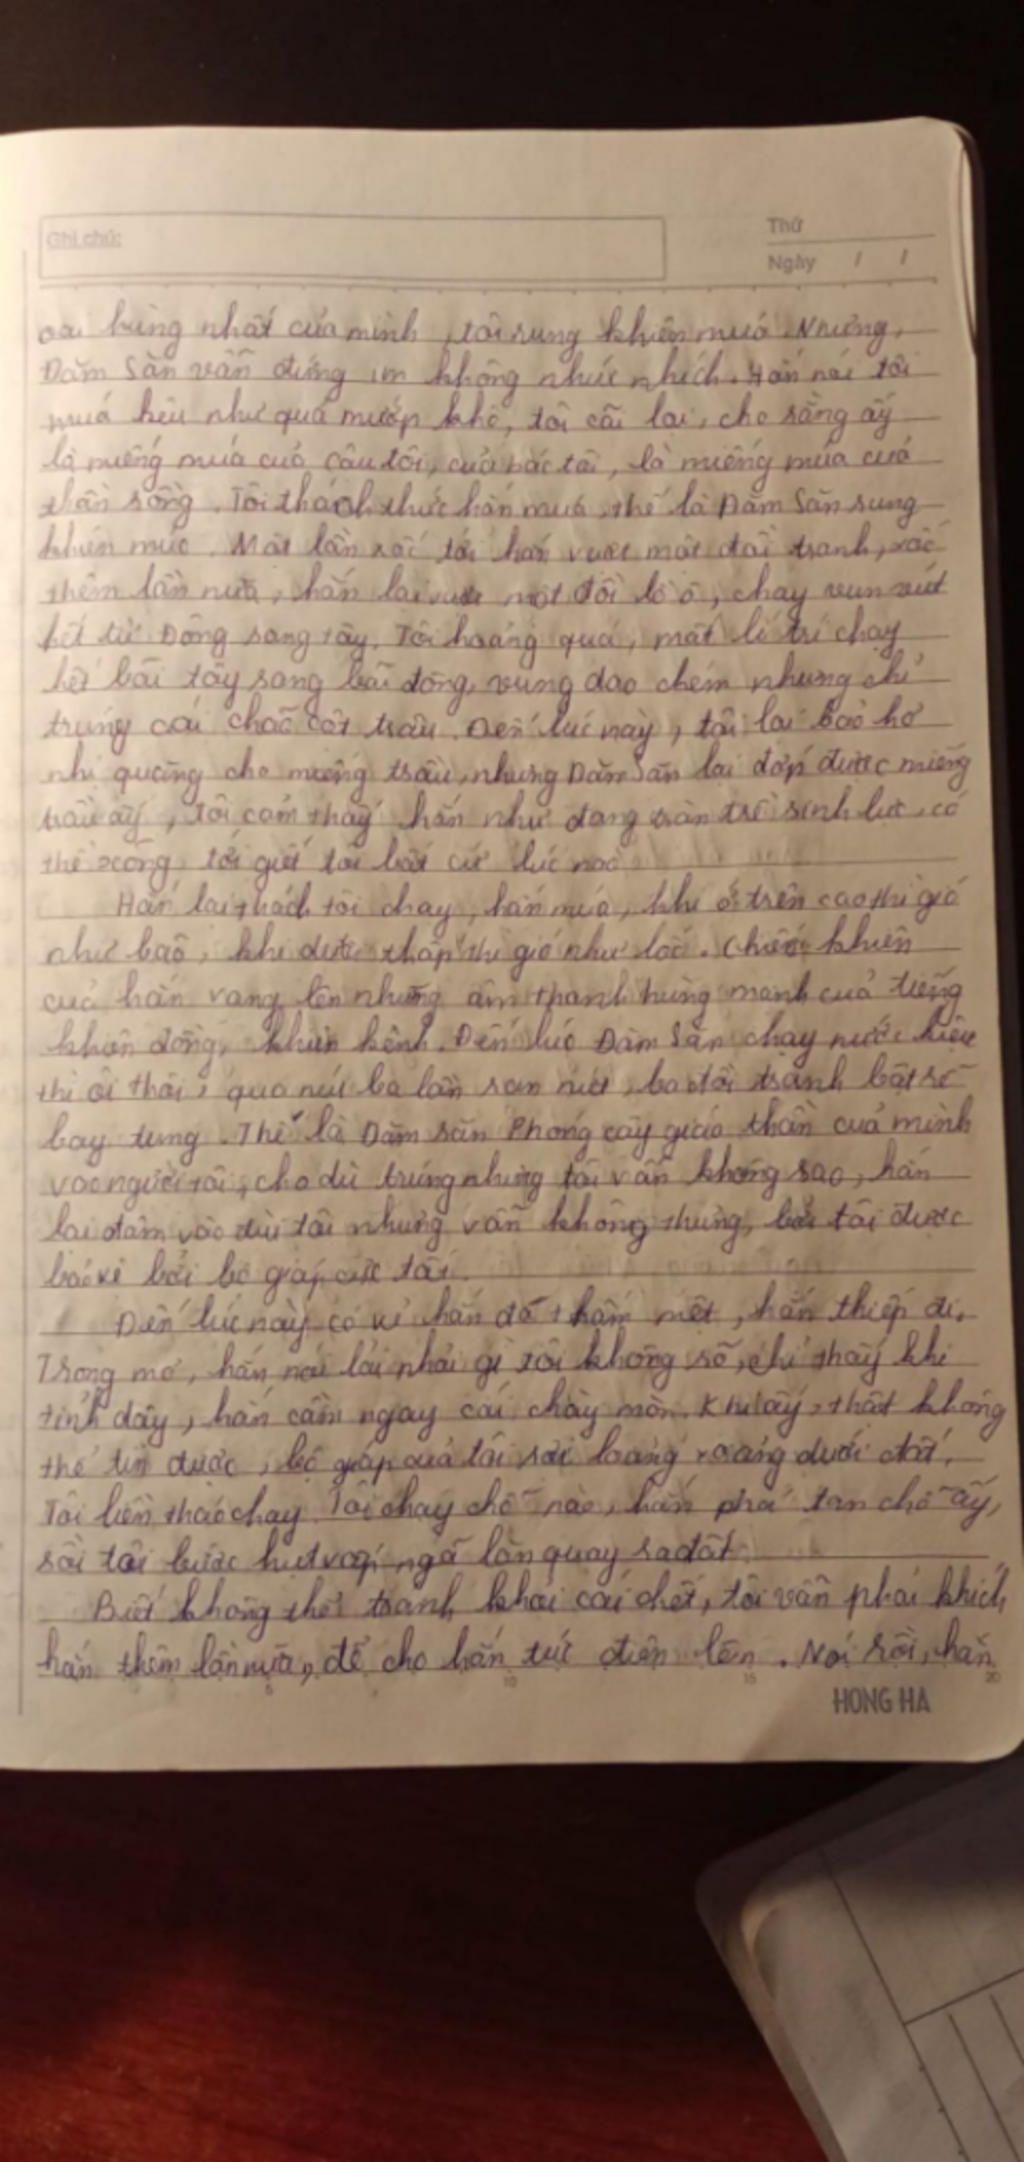 Ghi chú:
Thứ
Ngày / /
oai hùng nhất của mình, tôi rung khiên múa. Nhưng,
Đăm Săn vẫn đứng im không nhúc nhích. Hắn nói tôi
múa kêu như quả mướp khô, tôi cãi lại, cho rằng ấy
là miếng múa của cậu tôi, của bác tôi, là miếng múa của
thần rồng. Tôi thách thức hắn múa, thế là Đăm Săn rung
khiên múa. Một lần xốc tới hắn vượt một đồi tranh, xốc
thêm lần nữa, hắn lại vượt một đồi lồ ô, chạy vun vút
hết từ Đông sang Tây. Tôi hoảng quá, mất lí trí chạy
hết bãi tây sang bãi đông, vung dao chém nhưng chỉ
trúng cái chão cột trâu. Đến lúc này, tôi lại bảo hơ
nhị quăng cho miếng trầu, nhưng Đăm Săn lại đớp được miếng
trầu ấy, tôi cảm thấy hắn như đang tràn trề sinh lực, có
thể xông tới giết tôi bất cứ lúc nào
Hắn lại thách tôi chạy, hắn múa, khi ở trên cao thì gió
như bão, khi dưới thấp thì gió như lốc. Chiếc khiên
của hắn vang lên những âm thanh hùng mạnh của tiếng
khiên đồng, khiên kênh. Đến lúc Đăm Săn chạy nước kiệu
thì ôi thôi, quả núi ba lần rạn nứt, ba đồi tranh bật rễ
bay tung. Thế là Đăm Săn Phóng cây giáo thần của mình
vào người tôi, cho dù trúng nhưng tôi vẫn không sao, hắn
lại đâm vào đùi tôi nhưng vẫn không thủng, bởi tôi được
bảo vệ bởi bộ giáp của tôi.
Đến lúc này có vẻ hắn đã thấm mệt, hắn thiếp đi.
Trong mơ, hắn nói lải nhải gì tôi không rõ, chỉ thấy khi
tỉnh dậy, hắn cầm ngay cái chày mòn. Khi ấy, thật không
thể tin được, bộ giáp của tôi rơi loảng xoảng dưới đất.
Tôi liền tháo chạy. Tôi chạy chỗ nào, hắn phá tan chỗ ấy,
rồi tôi bước hụt ngã lăn quay ra đất.
Biết không thể tránh khỏi cái chết, tôi vẫn phải khích
hắn thêm lần nữa, để cho hắn tức điên lên. Nói rồi, hắn
5 10 15 20
HONG HA